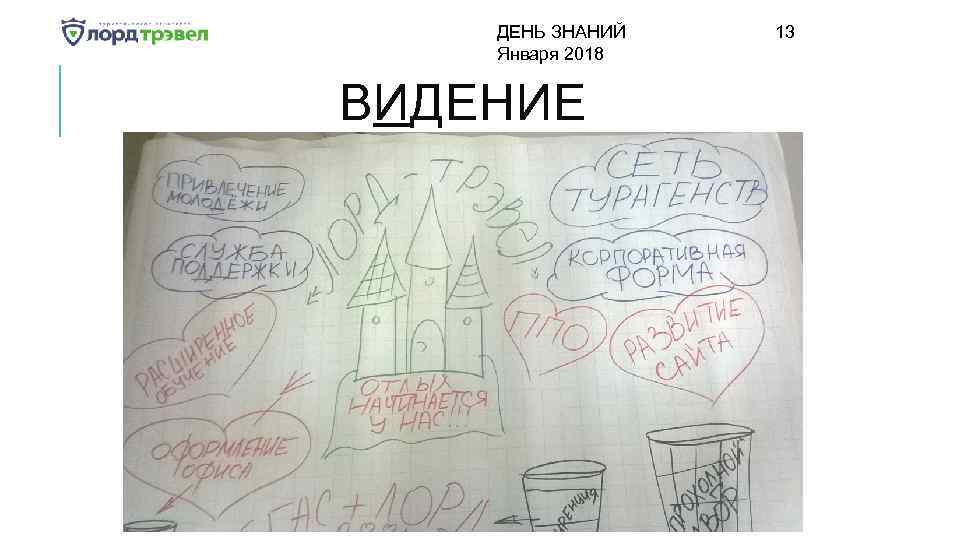 лорд трэвел
ДЕНЬ ЗНАНИЙ
Января 2018
13
ВИДЕНИЕ
ПРИВЛЕЧЕНИЕ
МОЛОДЁЖИ
ЛОРД - ТРЭВЕЛ
СЕТЬ
ТУРАГЕНСТВ
СЛУЖБА
ПОДДЕРЖКИ
КОРПОРАТИВНАЯ
ФОРМА
РАСШИРЕННОЕ
ОБУЧЕНИЕ
ППО
РАЗВИТИЕ
САЙТА
ОТДЫХ
НАЧИНАЕТСЯ
У НАС!!!
ОФОРМЛЕНИЕ
ОФИСА
ПРОХОДНОЙ
ДВОР